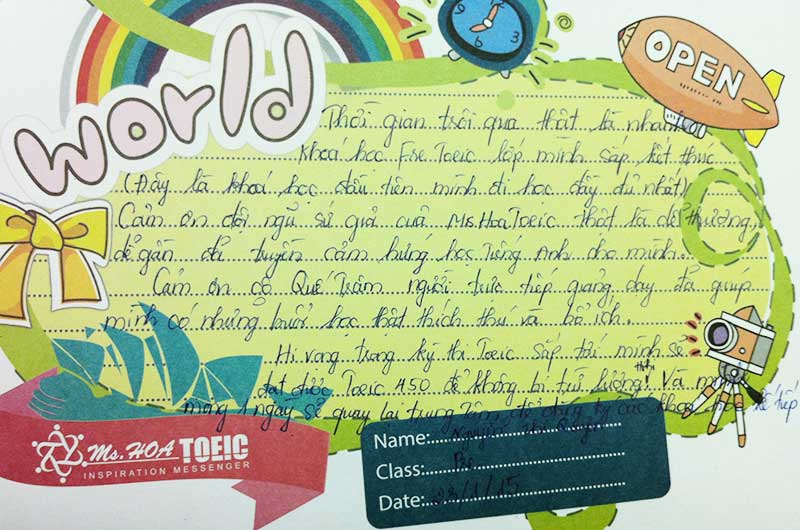 world
OPEN
Thời gian trôi qua thật là nhanh
Khoá học Fre Toeic lớp mình sắp kết thúc
(Đây là khoá học đầu tiên mình đi học đầy đủ nhất)
Cảm ơn đội ngũ sứ giả của Ms Hoa Toeic thật là dễ thương,
dể gần đã truyền cảm hứng học Tiếng Anh cho mình.
Cảm ơn cô Quế Trâm người trực tiếp giảng dạy đã giúp
mình có những buổi học thật thích thú và bổ ích.
Hi vọng trong kỳ thi Toeic sắp tới mình sẽ
đạt được Toeic 450 để không bị trừ lương! Và
mong 1 ngày sẽ quay lại trung tâm để đăng ký các khoá học kế tiếp
Ms. HOA TOEIC
INSPIRATION MESSENGER
Name: Nguyễn
Class: Pre
Date: 23/1/15